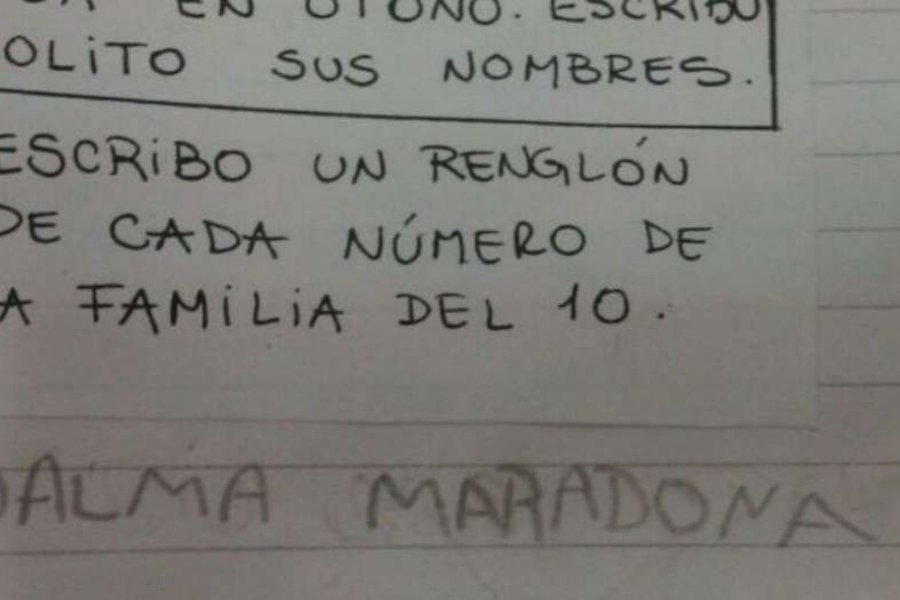 EN OTOÑO. ESCRIBO
OLITO SUS NOMBRES.
ESCRIBO UN RENGLÓN
DE CADA NÚMERO DE
A FAMILIA DEL 10.
DALMA MARADONA